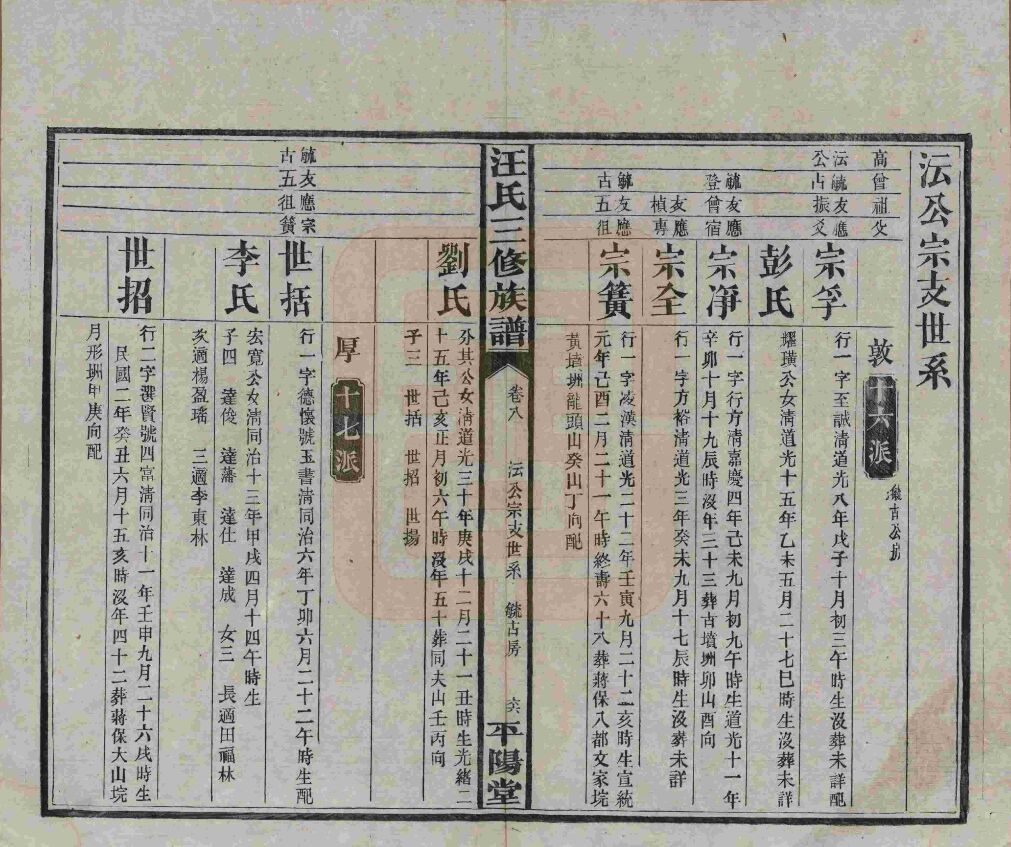 沄公宗支世系
高曾祖父
敦 十六派 毓古公房
沄毓友應
公占振爻
宗孚
行一字至誠清道光八年戊子十月初三午時生沒葬未詳配
彭氏
耀璜公女清道光十五年乙未五月二十七巳時生沒葬未詳
毓友應
登曾宿
宗淨
行一字行方清嘉慶四年己未九月初九午時生道光十一年
辛卯十月十九辰時沒年三十三葬古墳洲卯山酉向
友應
楨專
宗全
行一字方裕清道光三年癸未九月十七辰時生沒葬未詳
毓友應
古五徂
宗簧
行一字凌漢清道光二十二年壬寅九月二十二亥時生宣統
元年己酉二月二十一午時終壽六十八葬蔣保八都文家垸
黃墻洲龍頭山癸山丁向配
汪氏三修族譜
卷八
沄公宗支世系
毓古房
平陽堂
劉氏
芬其公女清道光三十年庚戌十二月二十一丑時生光緒二
十五年己亥正月初六午時沒年五十葬同夫山壬丙向
子三 世括 世招 世揚
厚 十七派
毓友應宗
古五徂簧
世括
行一字德懷號玉書清同治六年丁卯六月二十二午時生配
李氏
宏寬公女清同治十三年甲戌四月十四午時生
子四 達俊 達藩 達仕 達成 女三 長適田福林
次適楊盈瑤 三適李東林
世招
行二字選賢號四富清同治十一年壬申九月二十六戌時生
民國二年癸丑六月十五亥時沒年四十二葬蔣保大山垸
月形洲甲庚向配